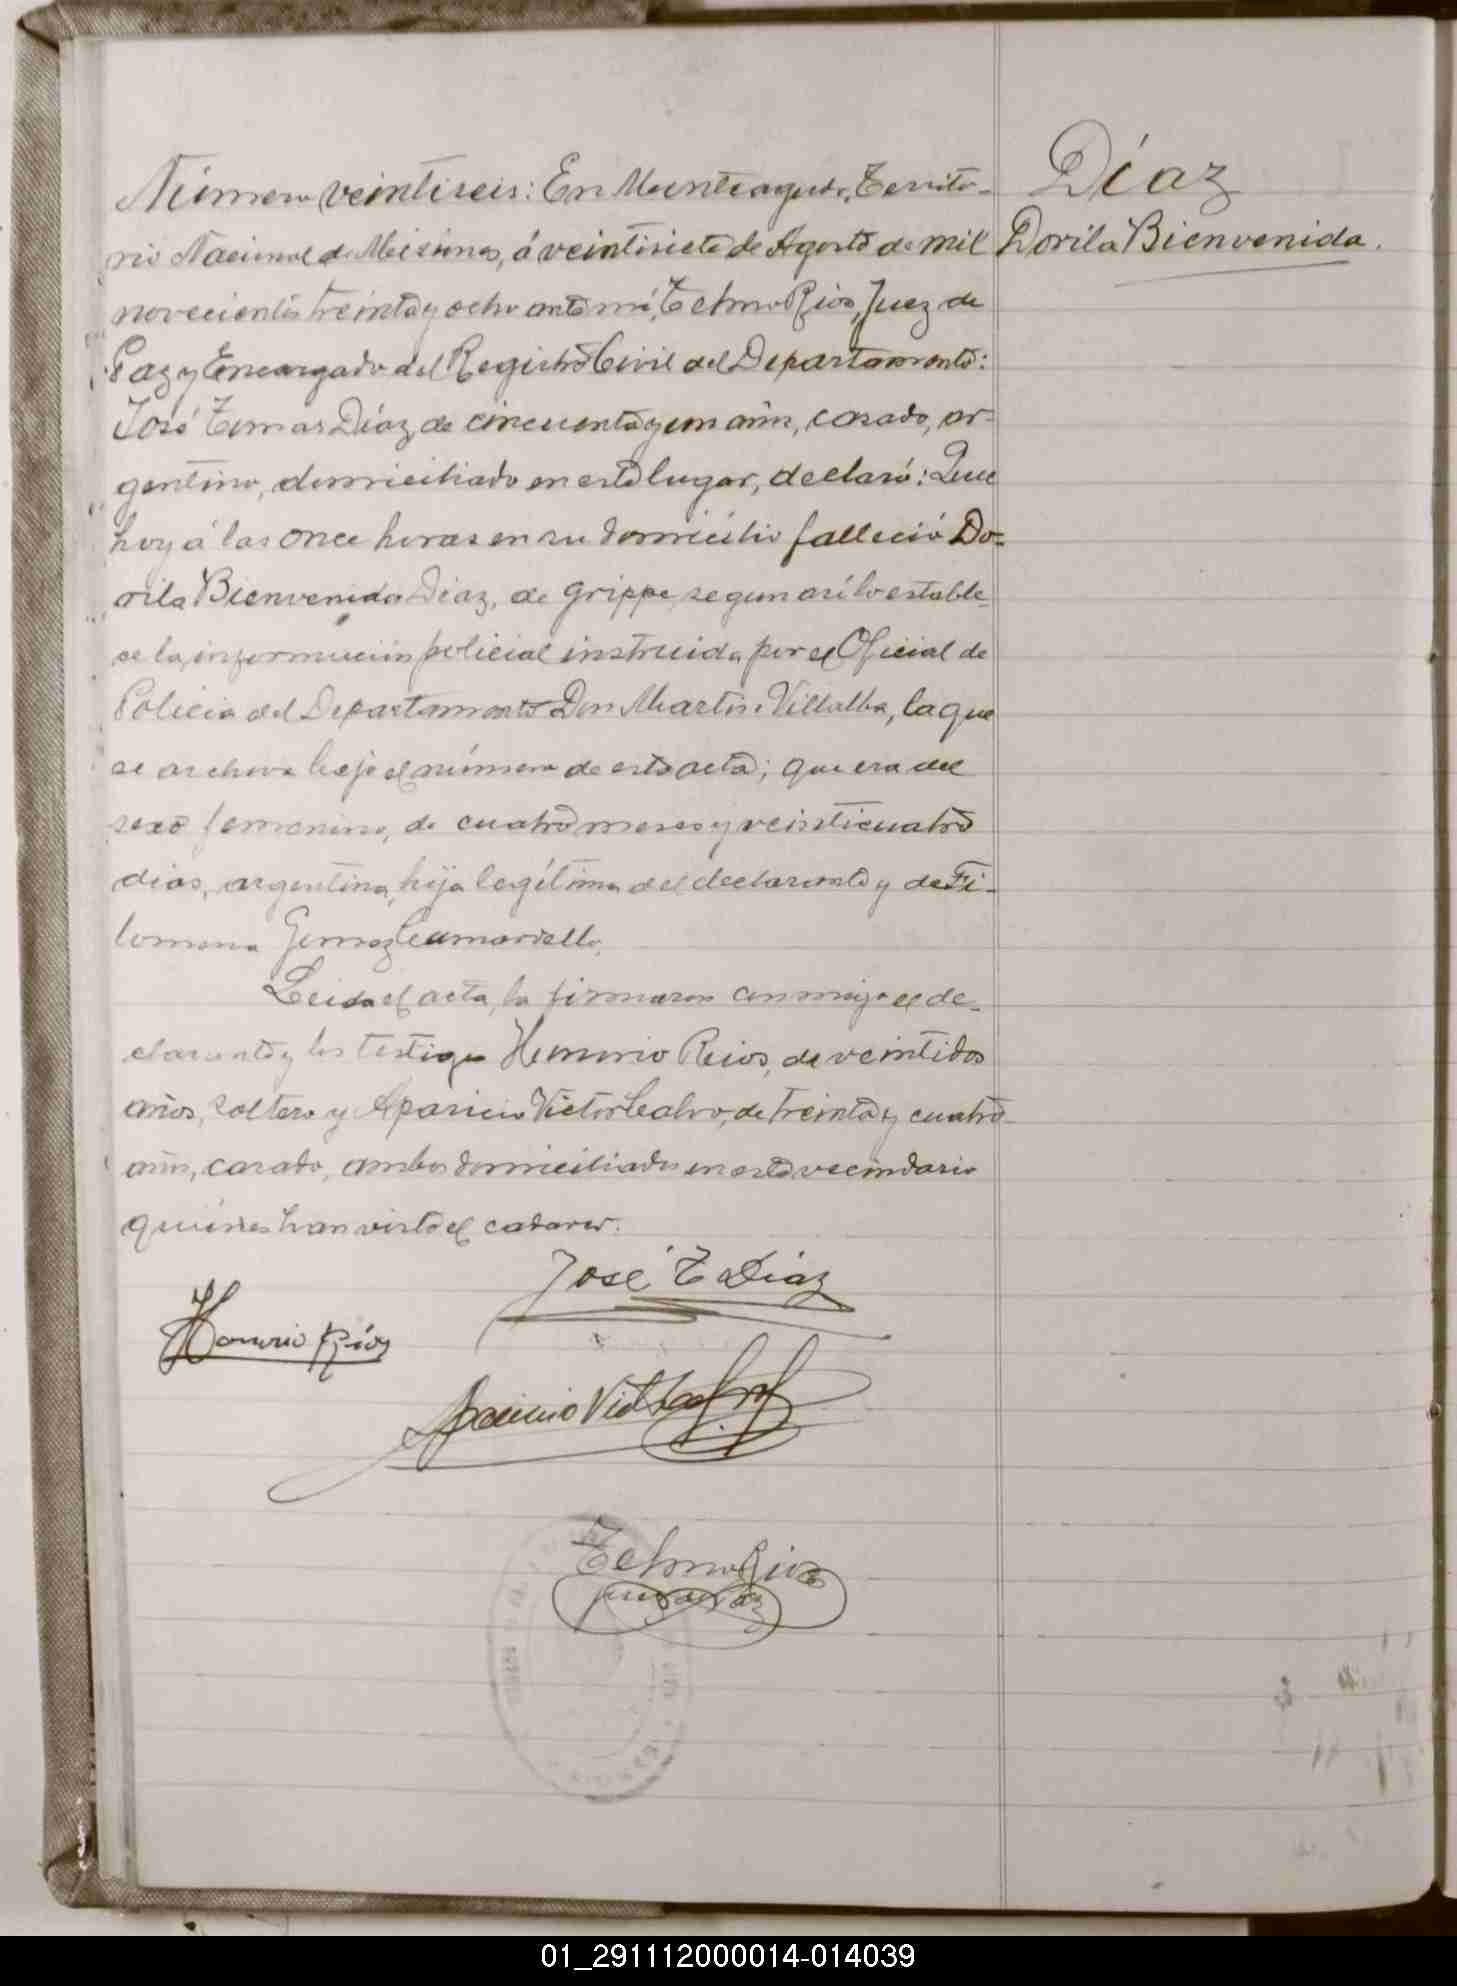 Número veintiseis: En Monteagudo, Territo-
rio Nacional de Misiones, á veintisiete de Agosto de mil
novecientos treinta y ocho ante mí, Telmo Rios, Juez de
Paz y Encargado del Registro Civil del Departamento:
José Tomas Díaz, de cincuenta y un años, casado, ar-
gentino, domiciliado en este lugar, declaró: Que
hoy á las once horas en su domicilio falleció Do-
rila Bienvenida Díaz, de grippe, segun así lo estable-
ce la información policial instruida por el Oficial de
Policia del Departamento Don Martin Villalba, la que
se archiva bajo el número de esta acta; que era del
sexo femenino, de cuatro meses y veinticuatro
dias, argentina, hija legítima del declarante y de Fi-
lomena Gomez
Leida el acta, la firmaron conmigo el de-
clarante y los testigos Honorio Rios, de veintidos
años, soltero y Aparicio Victor Calvo, de treinta y cuatro
años, casado, ambos domiciliados en este vecindario
quiénes han visto el cadaver.
José T Díaz
Honorio Ríos
Aparicio
Telmo Rios
juez de Paz
Díaz
Dorila Bienvenida.
01_291112000014-014039